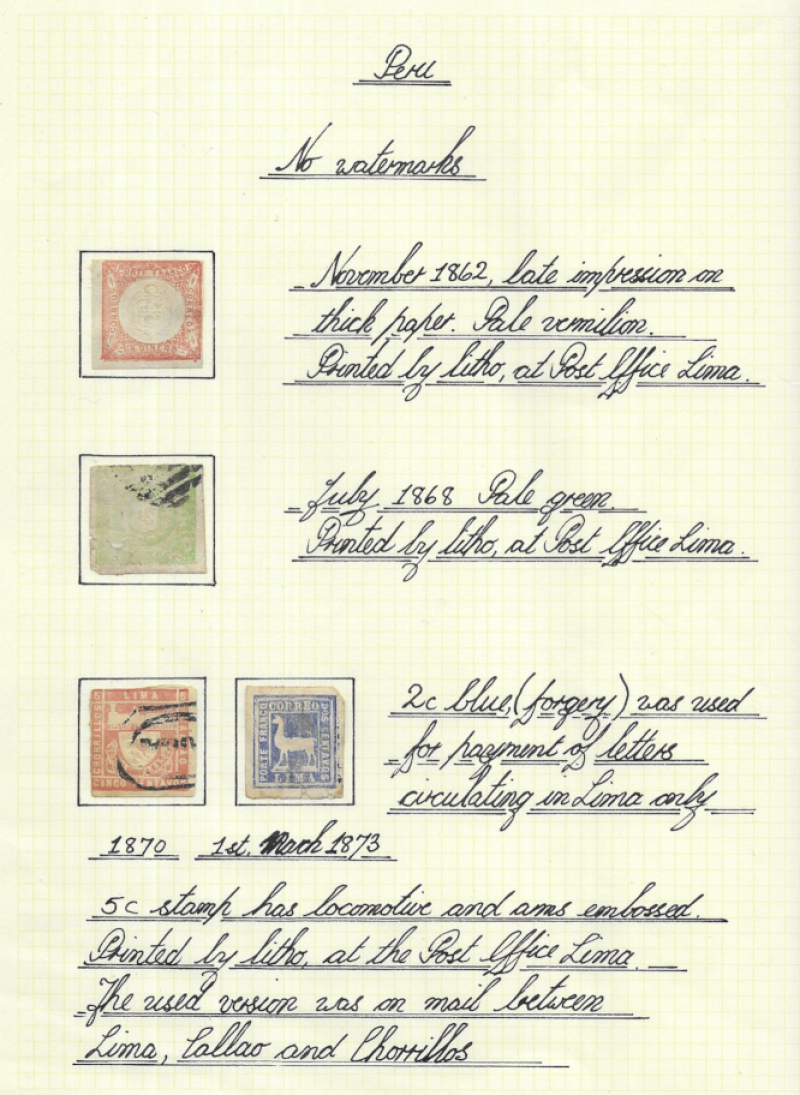 Peru
No watermarks
November 1862, late impression on
thick paper. Pale vermilion.
Printed by litho, at Post Office Lima.
PORTE FRANCO
CORREOS
UN DINERO
July 1868 Pale green.
Printed by litho, at Post Office Lima.
LIMA
CHORRILLOS
CINCO
CORREO
PORTE FRANCO
DOS CENTAVOS
LIMA
2c blue, (forgery) was used
for payment of letters
circulating in Lima only
1870 1st. March 1873
5c stamp has locomotive and arms embossed.
Printed by litho, at the Post Office Lima.
The used version was on mail between
Lima, Callao and Chorrillos